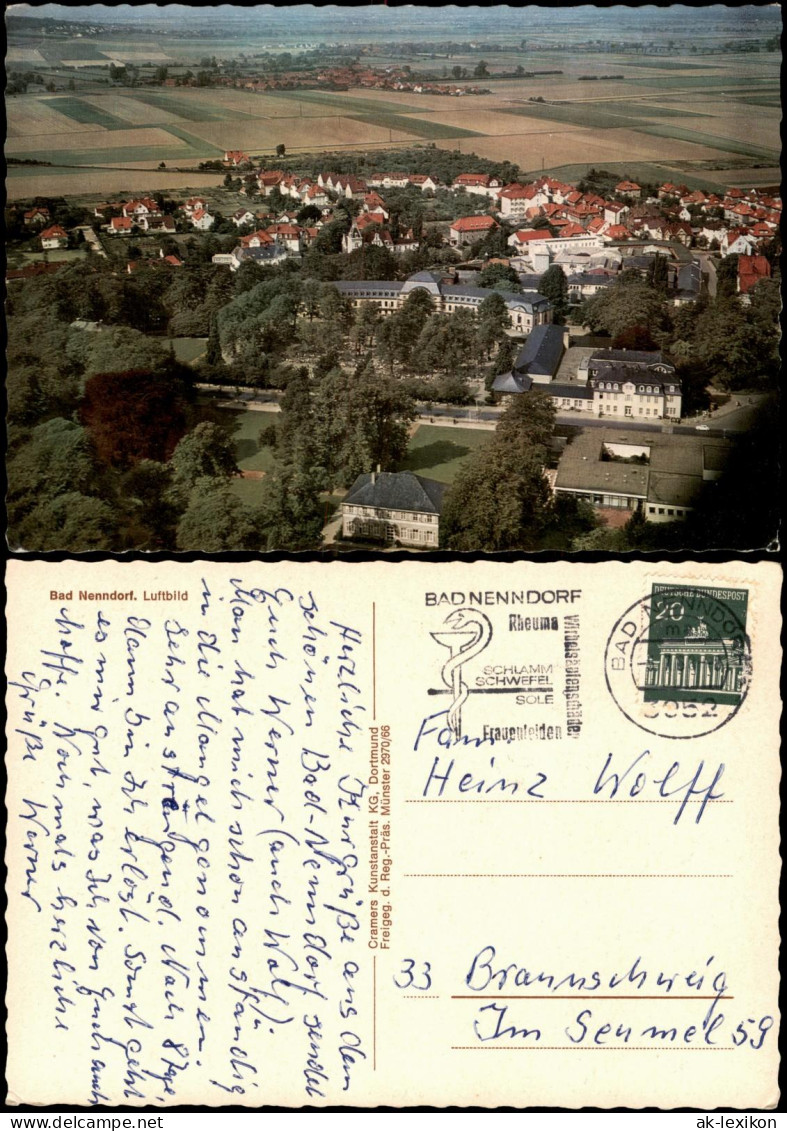 Bad Nenndorf. Luftbild
Herzliche Kurgrüße aus dem
schönen Bad-Nenndorf sendet
Euch Werner (auch Wolf)
Man hat mich schon anständig
in die Mangel genommen.
Sehr anstrengend. Noch 8 Tage,
dann bin Ich erlöst. Sonst geht
es mir gut, was Ich von Euch auch
hoffe. Nochmals herzliche
Grüße Werner
Cramers Kunstanstalt KG, Dortmund
Freigeg. d. Reg.-Präs. Münster 2970/66
BAD NENNDORF
Rheuma
Wirbelsäulenschäden
SCHLAMM
SCHWEFEL
SOLE
Frauenleiden
BAD NENNDORF
3052
DEUTSCHE BUNDESPOST
20
Fam.
Heinz Wolff
33 Braunschweig
Im Seumel 59
ak-lexikon.com